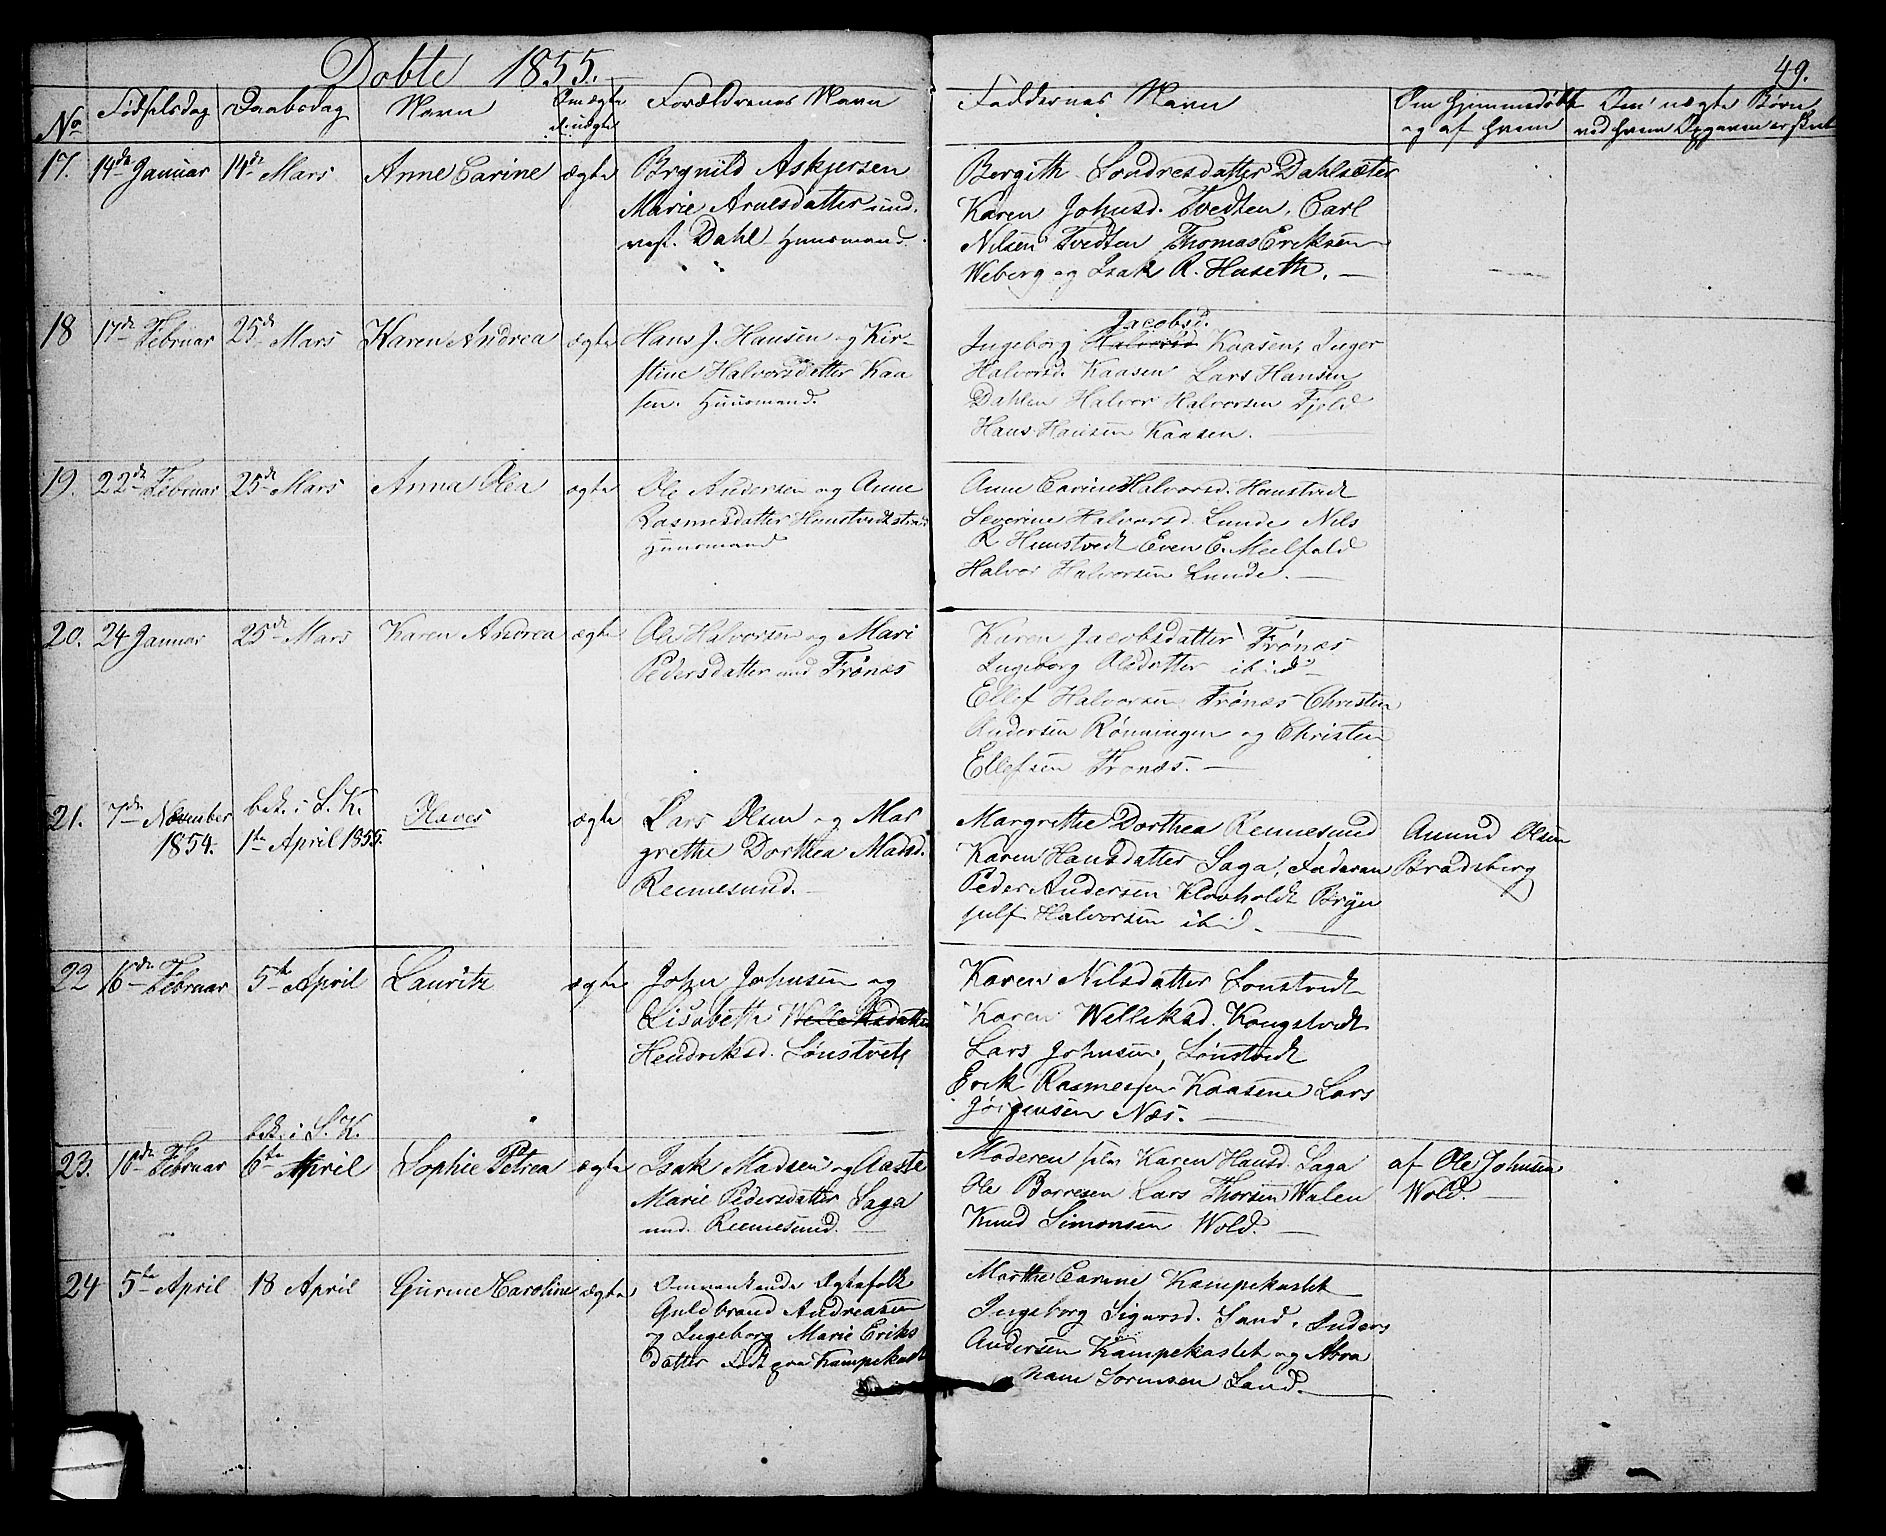 Döbte 1855.
49.
No Födselsdag Daabsdag Navn Om ægte el. uægte Forældrenes Navn Faddernes Navn Om hjemmedöbt og af hvem Om uægte Børn ved hvem Opgaven er skeet
17. 14de Januar 14de Mars Anne Carine ægte Brynild Askjersen
Marie Arnesdatter und.
vest. Dahl Huusmand.
Bergith Sondresdatter Dahlsæter
Karen Johnsd. Tvedten, Carl
Nilsen Tvedten Thomas Eriksen
Weberg og Isak R. Huseth.
18 17de Februar 25de Mars Karen Andrea ægte Hans J. Hansen og Kir-
stine Halvorsdatter Kaa
sen. Huusmand.
Jacobsd.
Ingeborg Halvorsd Kaasen, Inger
Halvorsd. Kaasen Lars Hansen
Dahlen Halvor Halvorsen Fjeld
Hans Hansen Kaasen.
19. 22de Februar 25de Mars Anna Olea ægte Ole Andersen og Anne
Rasmusdatter
Huusmand
Anne Carine Halvorsd. Haustvedt
Severine Halvorsd. Lunde Nils
R Haustvedt Even E. Meelfald
Halvor Halvorsen Lunde.
20. 24 Januar 25de Mars Karen Andrea ægte Ole Halvorsen og Mari
Pedersdatter und Frönæs
Karen Jacobsdatter Frönæs
Ingeborg Olsdatter ibid
Ellef Halvorsen Frönæs Christen
Andersen Rönningen og Christen
Ellefsen Fronæs.
21. 7de November 1854. bek. i S. K. 1te April 1855. Olaves ægte Lars Olsen og Mar
grethe Dorthea Madsd.
Rennesund.
Margrethe Dorthea Rennesund
Karen Hansdatter Saga, Faderen
Peder Andersen Klovholdt Bryn
julf Halvorsen ibid.
Amund Olsen
Bradsberg
22 16de Februar 5te April Lauritz ægte John Johnsen og
Elisabeth Welleksdatter
Hendriksd. Lönstvedt
Karen Nilsdatter Lonstvedt
Karen Welleksd. Kongstvedt
Lars Johnsen Lönstvedt
Erik Rasmessen Kaasene Lars
Jörgensen Næs.
23. 10de Februar bek. i S. K. 6te April Sophie Petrea ægte Isak Madsen og Aaste
Marie Pedersdatter Saga
und. Rennesund.
Moderen selv Karen Hansd. Saga
Ole Borresen Lars Thorsen Walen
Knud Simonsen Wold.
af Ole Johnsen
Wold.
24 5te April 18 April Gurine Caroline ægte Omvankende Ægtefolk
Guldbrand Andreasen
og Ingeborg Marie Eriks
datter Födt paa Kampekastet
Marthe Carine Kampekastet
Ingeborg Sigursd. Sand, Anders
Andersen Kampekastet og Abra
ham Sorensen Sand.